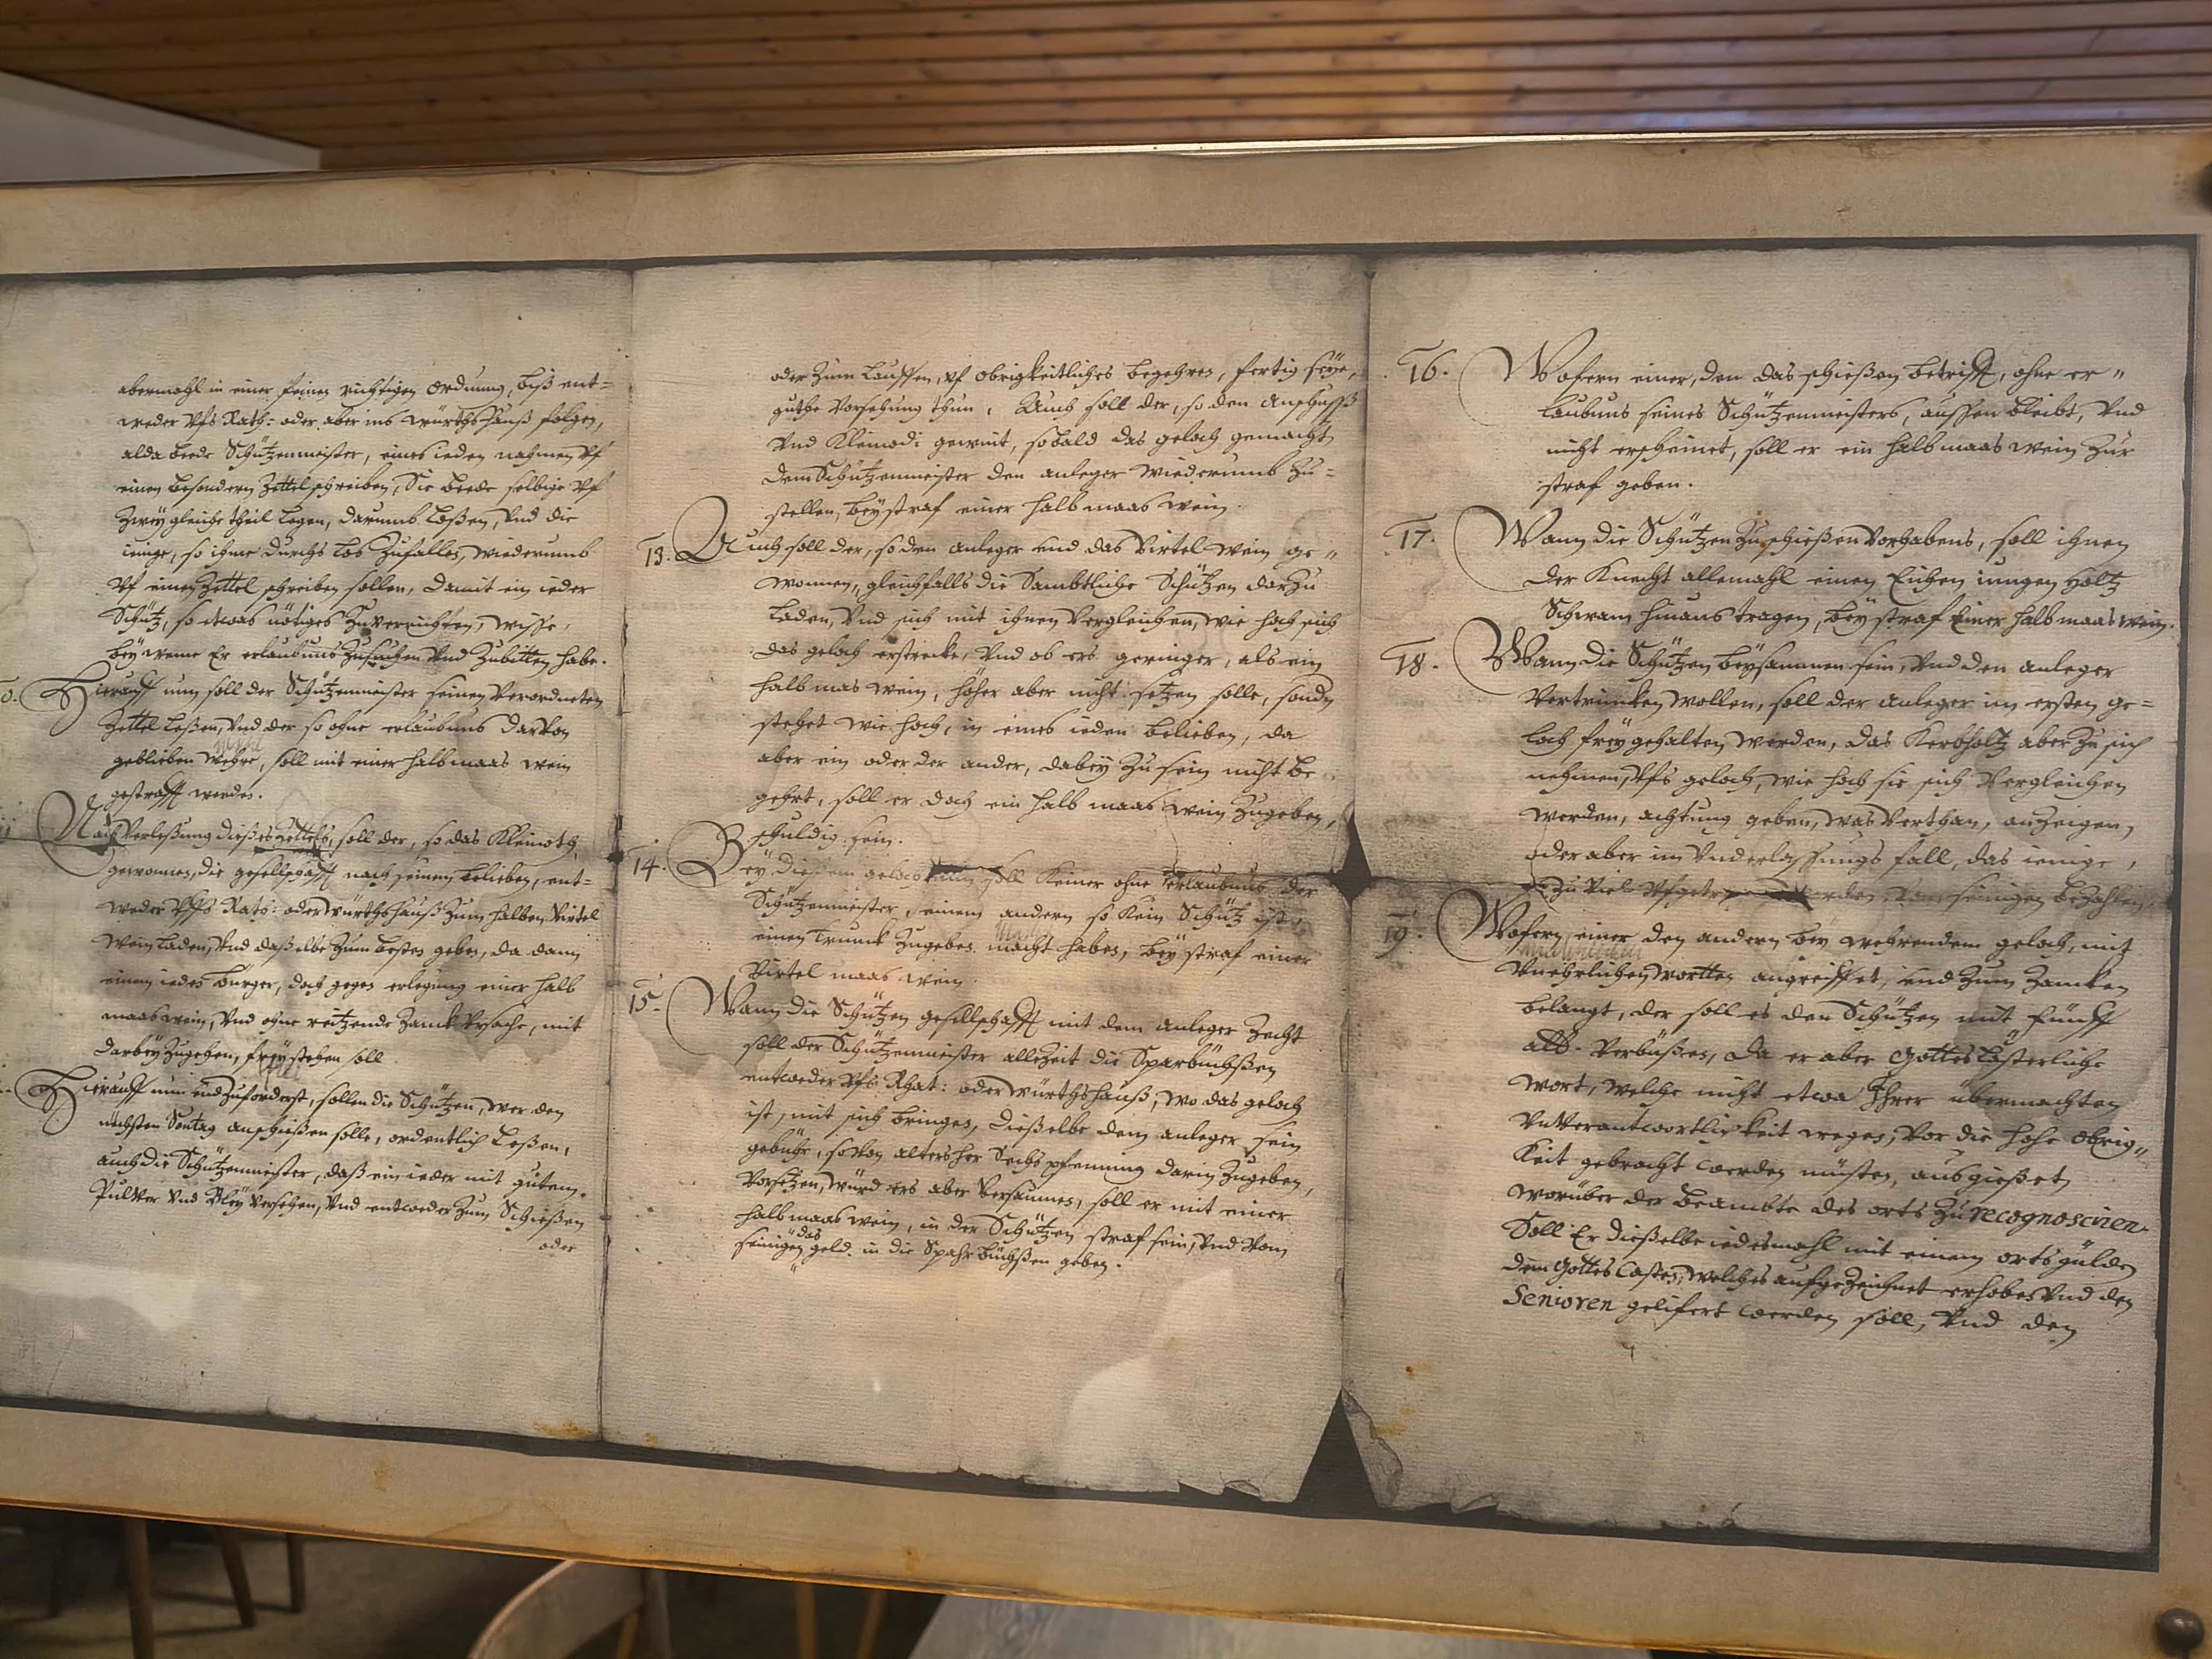 abermahl in einer feinen richtigen Ordnung, biß ent=
weder Vfs Rath= oder aber ins würthshauß folgen,
alda beede Schützenmeister, eines ieden nahmen Vf
einen besondern Zettel schreiben, Sie beede selbige Vf
Zwey gleiche theil legen, darumb loßen, Vnd die
ienige, so ihme durchs los Zufallen, wiederumb
Vf einen Zettel schreiben sollen, damit ein ieder
Schütz, so etwas nötiges Zuverrichten, wisse,
bey weme Er erlaubnus Zusuchen Vnd Zubitten habe.
0. Hierauff nun soll der Schützenmeister seinen Verordneten
Zettel leßen, Vnd der so ohne erlaubnus darvon
geblieben wehre, soll mit einer halb maas wein
gestrafft werden.
Nach Verleßung dießes Zettels, soll der, so das Kleinoth
gewonnen, die gesellschafft nach seinem belieben, ent=
weder Vfs Rath= oder würthshauß Zum halben Virtel
wein laden, Vnd daßelbe Zum besten geben, da dann
einem ieden burger, doch gegen erlegung einer halb
maas wein, Vnd ohne reitzende Zanck Vrsache, mit
darbey Zugehen, frey stehen soll
Hierauff nun Vnd Zuforderst, sollen die Schützen, wer den
nechsten Sontag anschießen solle, ordentlich loßen,
auch die Schützenmeister, daß ein ieder mit gutem
Pulver Vnd Bley versehen, Vnd entweder Zum Schießen
oder
oder Zum lauffen, Vf Obrigkeitliches begehren, fertig seye,
guthe Vorsehung thun, Auch soll der, so den anschuß
Vnd Kleinodi gewint, so bald das geloch gemacht
dem Schützenmeister den anleger wiederumb Zu=
stellen, bey straf einer halb maas wein.
13. Auch soll der, so den anleger Vnd das Virtel wein ge"
wonnen, gleichfalls die Sambtliche Schützen darzu
laden, Vnd sich mit ihnen Vergleichen, wie hoch sich
das geloch erstrecke, Vnd ob ers geringer, als ein
halb mas wein, höher aber nicht setzen solle, sondn
stehet wie hoch, in eines ieden belieben, da
aber ein oder der ander, dabey Zu sein nicht be
gehrt, soll er doch ein halb maas wein Zugeben,
schuldig sein.
14. Bey dießem geloch soll Keiner ohne erlaubnus der
Schützenmeister, einem andern so Kein Schütz ist,
einen trunck Zugeben macht haben, bey straf einer
Virtel maas wein
15. Wann die Schützen gesellschafft mit dem anleger Zecht
soll der Schützenmeister alleZeit die Sparbüchßen
entweder Vfs Rhat= oder würthshauß, wo das geloch
ist, mit sich bringen, dießelbe dem anleger sein
gebühr, so von alters her Sechs pfenning darin Zugeben,
Vorsetzen, würd ers aber Versaumen, soll er mit einer
halb maas wein, in der Schützen straf sein, Vnd Vom
das
seinigen geld in die Spahrbüchßen geben.
16. Wofern einer, den das schießen betrifft, ohne er"
laubnus seines Schützenmeisters, aussen bleibt, Vnd
nicht erscheinet, soll er ein halb maas wein Zur
straf geben.
17. Wann die Schützen Zuschießen Vorhabens, soll ihnen
der Knecht allemahl einen Eichen iungen Holtz
Schwam hinaus tragen, bey straf Einer halb maas wein.
18. Wann die Schützen beysammen sein, Vnd den anleger
Vertrincken wollen, soll der anleger im ersten ge=
loch frey gehalten werden, das Kerbholtz aber Zu sich
nehmen, Vfs geloch, wie hoch sie sich Vergleichen
werden, achtung geben, was Verthan, anZeigen,
oder aber im Vnderlassungs fall, das ienige,
so Zu Viel Vfgetr werden, Von seinigen beZahlen.
19. Wofern einer den andern bey wehrendem geloch, mit
Vnehrlichen wortten angreiffet, Vnd Zum Zancken
belangt, der soll es den Schützen mit fünff
alb. Verbüßen, da er aber Gottes lästerliche
wort, welche nicht etwa Ihrer übermachten
Vnverantwortlichkeit wegen, Vor die hohe Obrig"
Keit gebracht werden müsten, ausgießet
worüber der beambte des orts Zu recognosciren
Soll Er dießelbe iedesmahl mit einem orts gülden
dem Gottes Casten, welches aufgeZeichnet erhoben Vnd den
Senioren gelifert werden soll, Vnd den